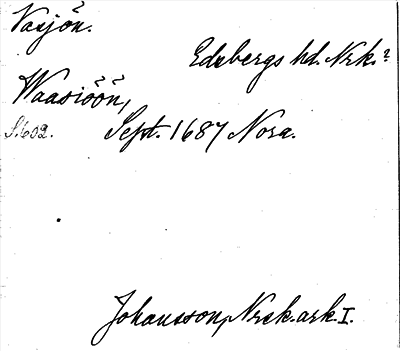 Vasjön.
Edsbergs hd. Nrk.?
Waasiöön,
S. 602. Sept. 1687 Nora.
Johansson, Nrsk. ark. I.